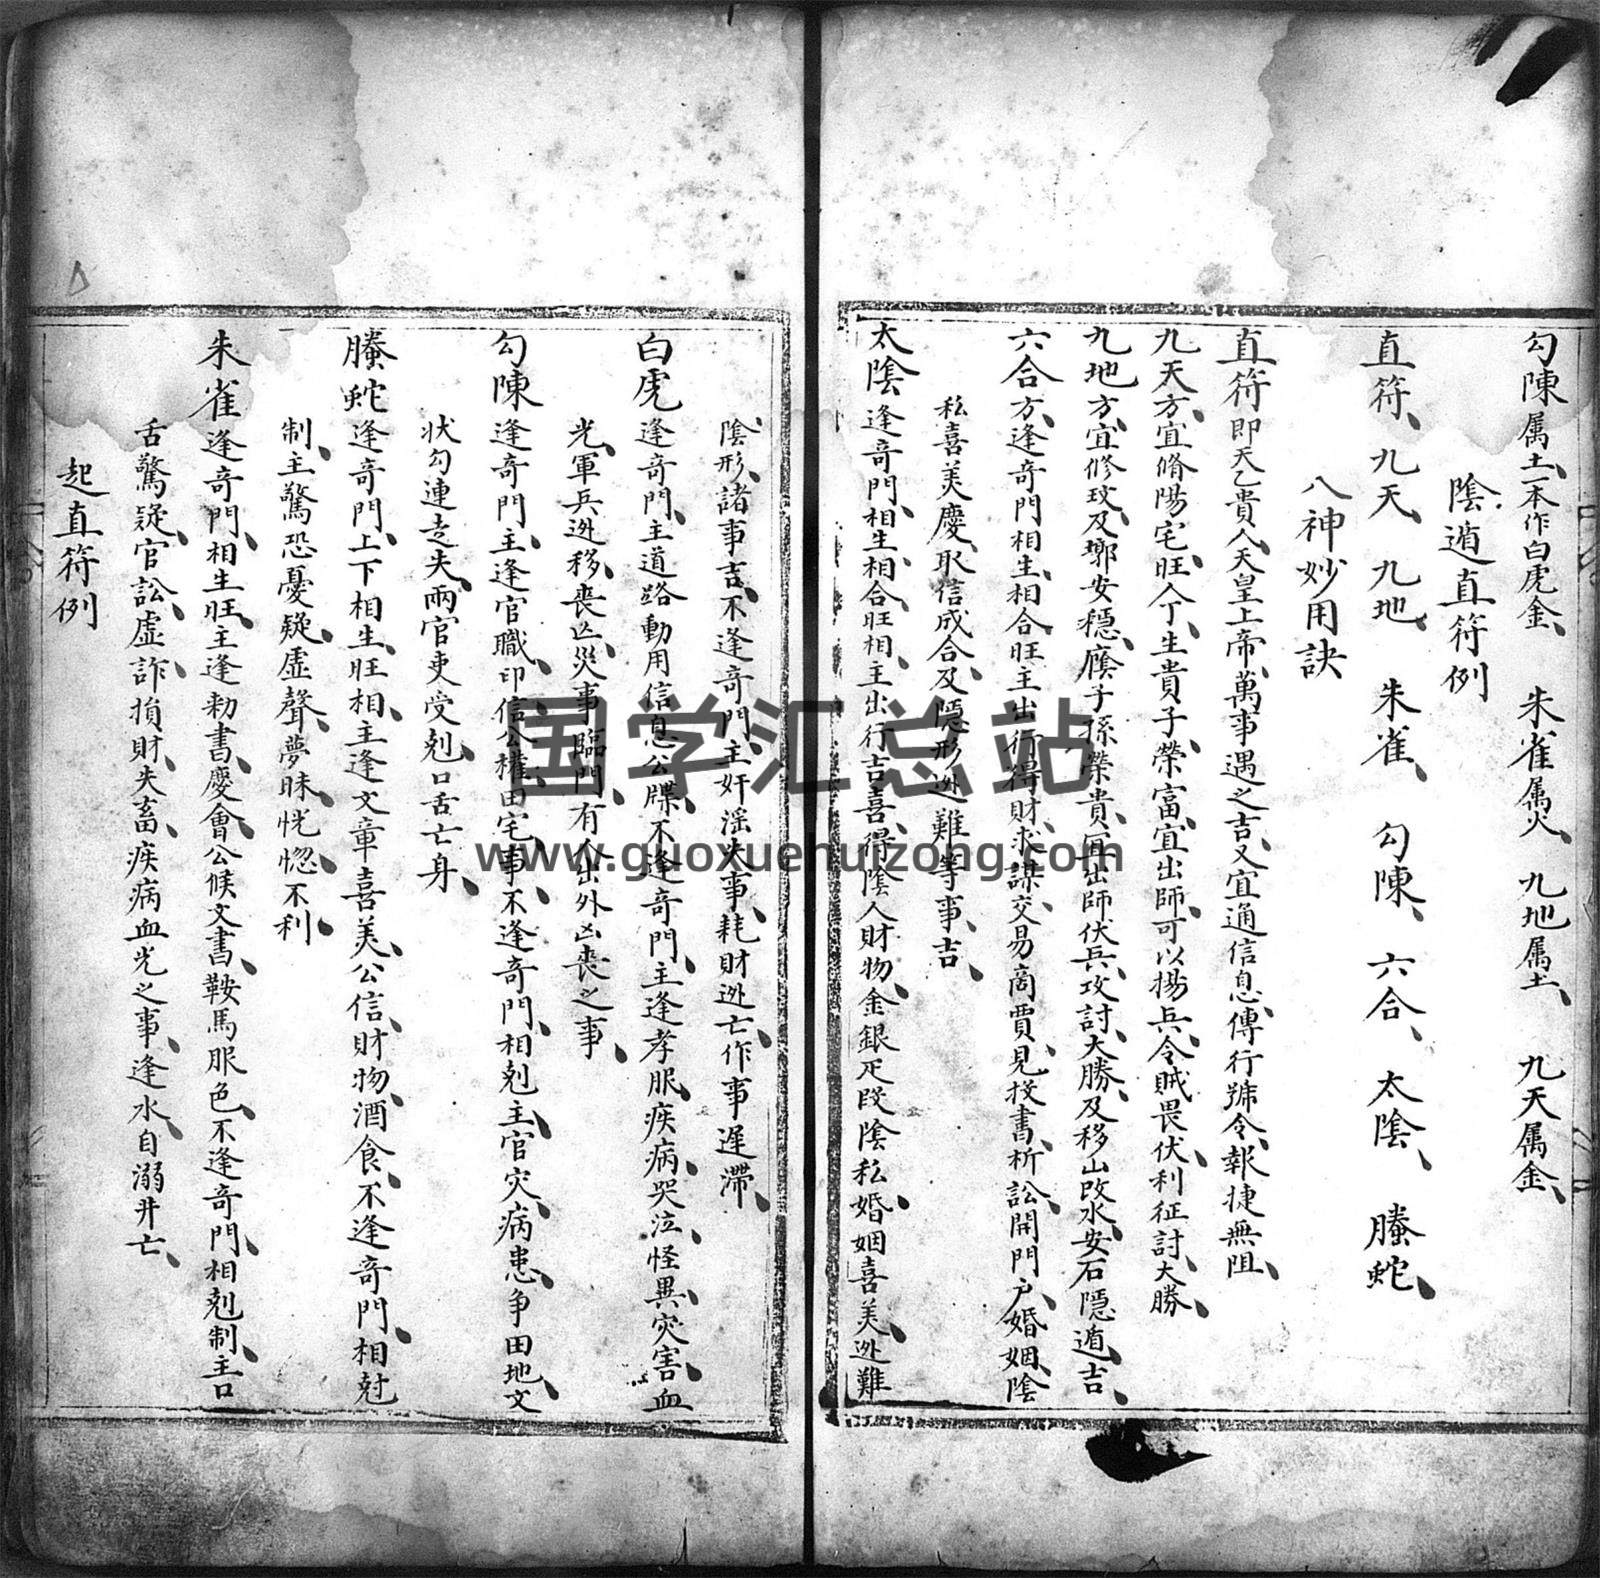 勾陳属土一本作白虎金、朱雀属火、九地属土、九天属金、
陰遁直符例
直符、九天、九地、朱雀、勾陳、六合、太陰、螣蛇、
八神妙用訣
直符即天乙貴人天皇上帝、萬事遇之吉、又宜通信息、傳行號令、報捷無阻、
九天方、宜脩陽宅、旺人丁、生貴子、榮富、宜出師、可以揚兵、令賊畏伏、利征討、大勝、
九地方、宜修攻及塚安穩、廕子孫榮貴、宜出師伏兵、攻討、大勝、及移山改水、安石隱遁、吉、
六合方、逢奇門、相生相合旺、主出行得財、求謀、交易商賈、見投書、析訟、開門户、婚姻、陰
私喜美慶、取信成合、及隱形迯難等事、吉、
太陰逢奇門、相生相合旺相、主出行吉、喜得陰人財物、金銀疋段、陰私婚姻喜美、迯難
陰形、諸事吉、不逢奇門、主奸淫失事、耗財迯亡、作事遲滯、
白虎逢奇門、主道路動用信息公牒、不逢奇門、主逢孝服、疾病、哭泣、怪異、灾害、血
光、軍兵迯移、喪亾、災事臨門、有人出外凶喪之事、
勾陳逢奇門、主逢官職、印信、公權、田宅事、不逢奇門、相剋、主官灾、病患、争田地、文
状勾連、走失、兩官吏受剋、口舌亡身、
螣蛇逢奇門、上下相生、旺相、主逢文章喜美、公信、財物、酒食、不逢奇門、相尅
制、主驚恐憂疑、虛聲、夢昧恍惚不利、
朱雀逢奇門、相生旺、主逢勑書、慶會、公候文書、鞍馬服色、不逢奇門、相剋制、主口
舌驚疑、官訟、虛詐、損財、失畜、疾病血光之事、逢水自溺井亡、
起直符例
国学汇总站
www.guoxuehuizong.com